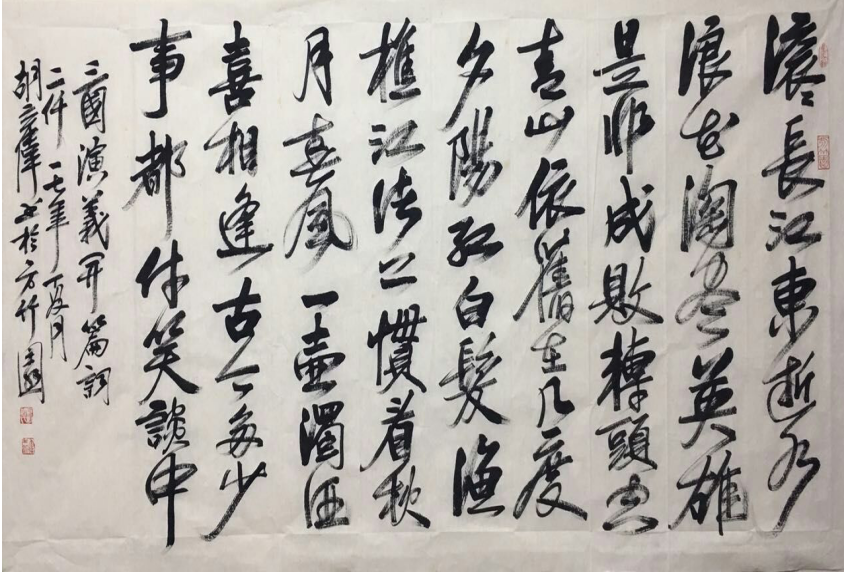 滚〻長江東逝水
浪花淘尽英雄
是非成敗轉頭空
青山依舊在几度
夕陽紅白髮漁
樵江渚上慣看秋
月春風一壺濁酒
喜相逢古今多少
事都付笑談中
三國演義开篇詞
二仟一七年夏月
胡偉书於方竹園